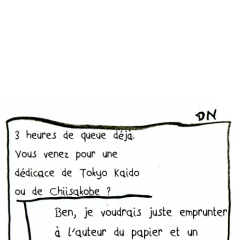 DN
3 heures de queue déjà.
Vous venez pour une
dédicace de Tokyo Kaido
ou de Chiisakobe ?
Ben, je voudrais juste emprunter
à l'auteur du papier et un